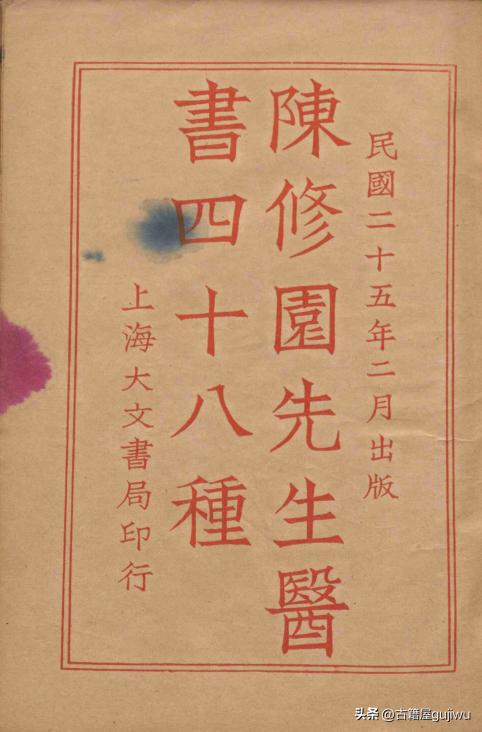 民國二十五年二月出版
陳修園先生醫
書四十八種
上海大文書局印行
头条 @古籍屋gujiwu